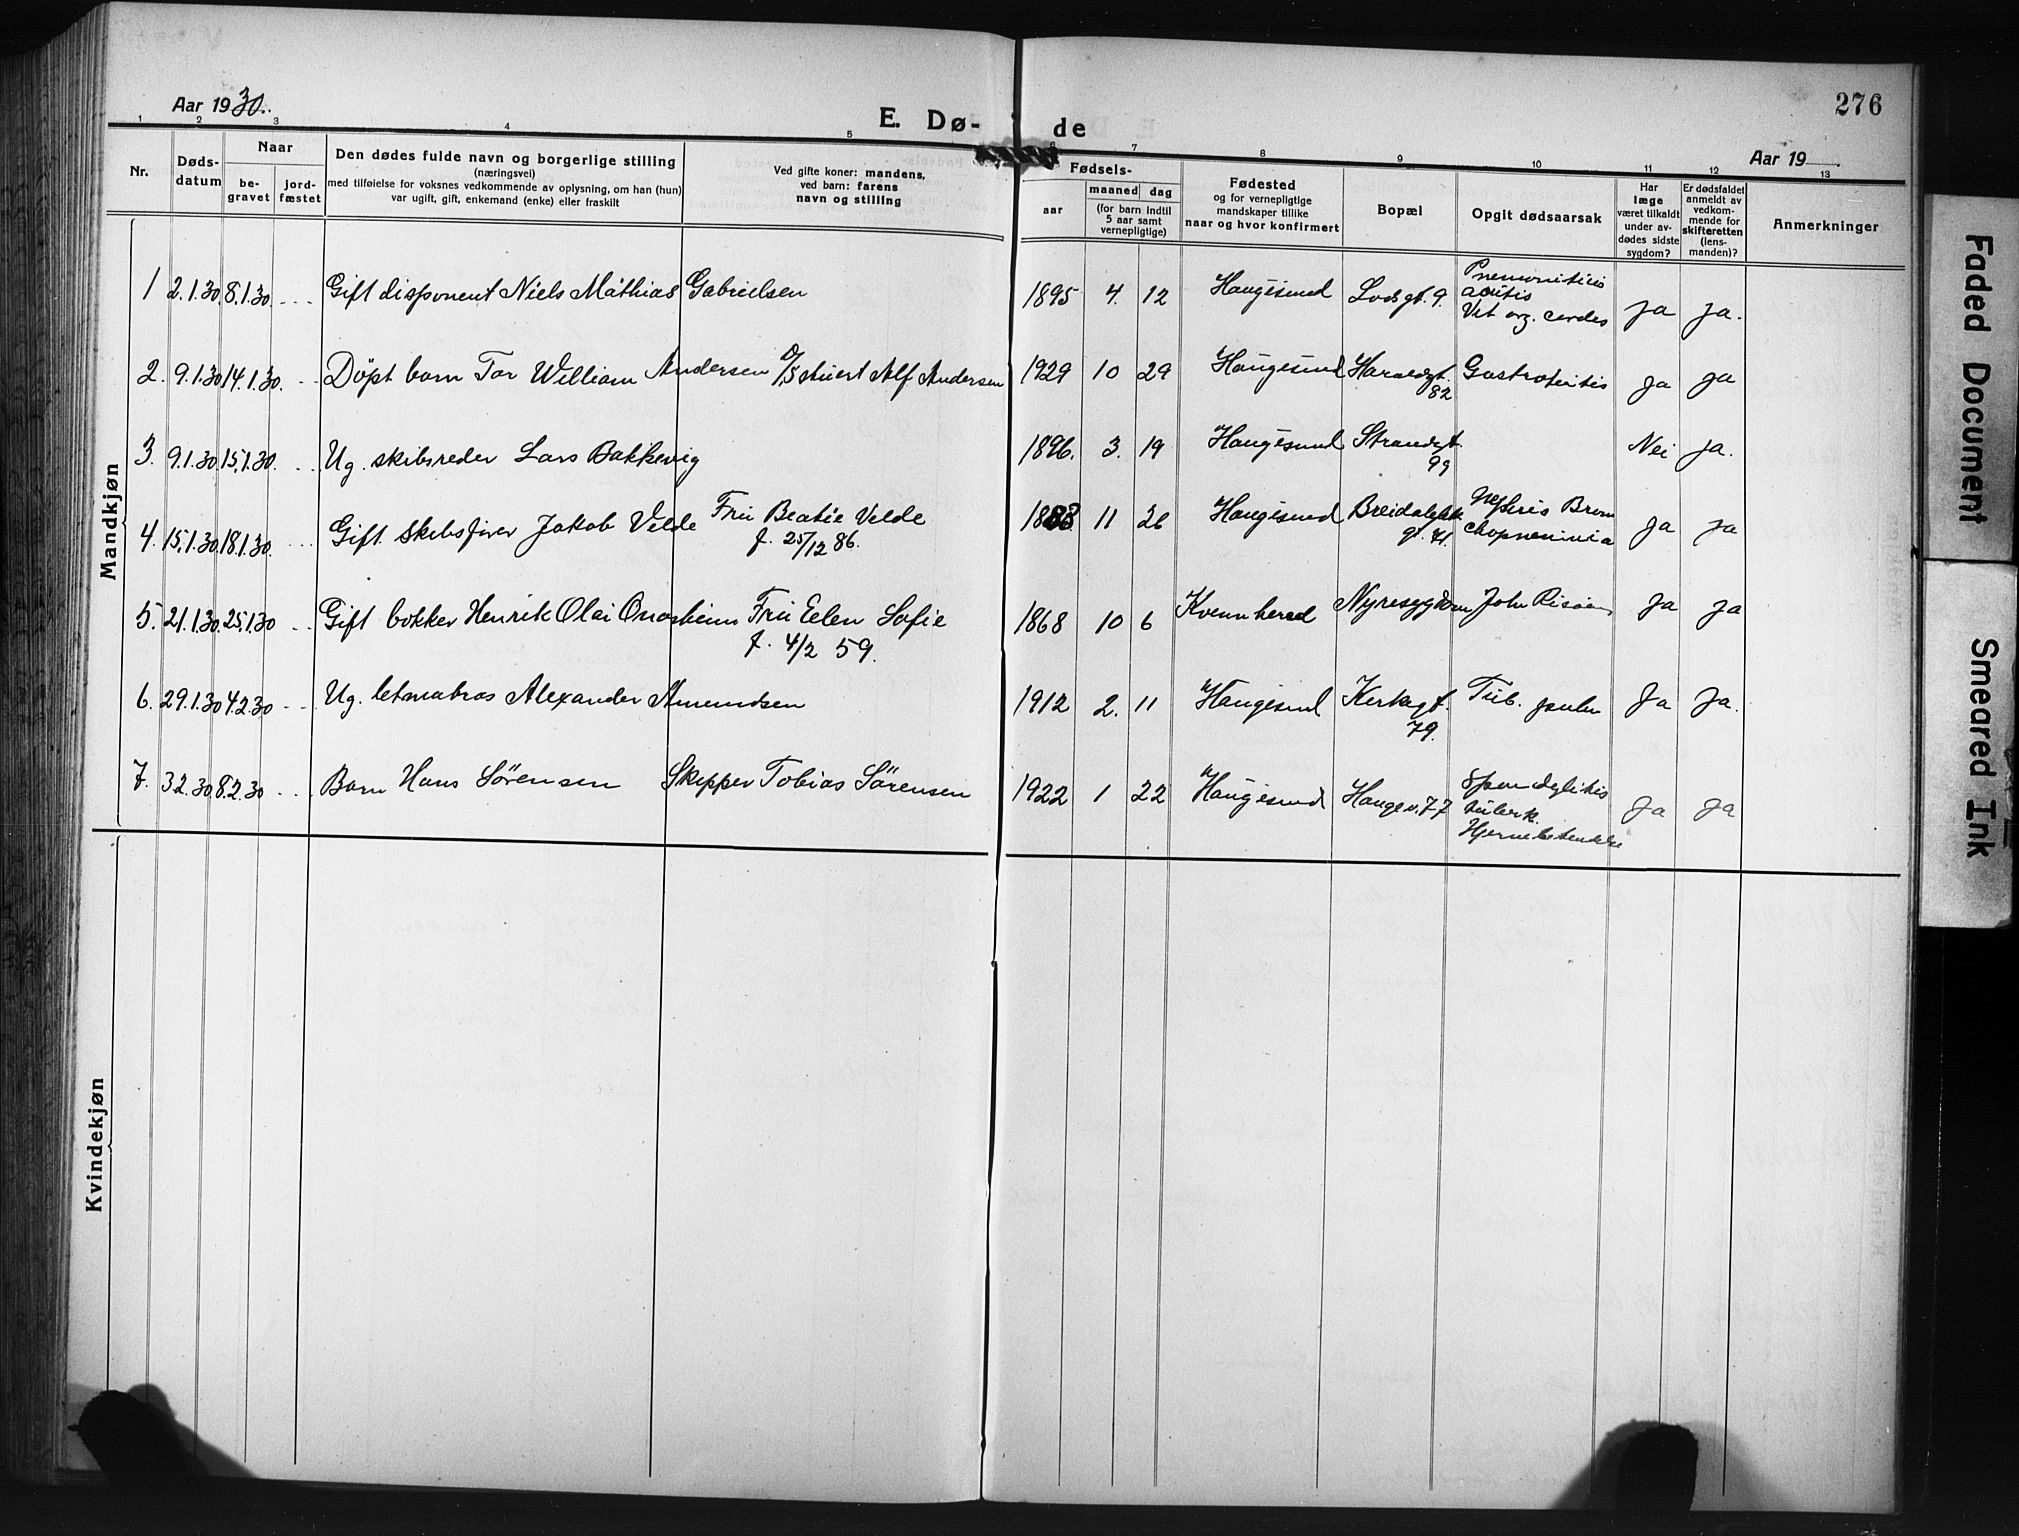 276
Aar 1930.
E. Dø-
de
Aar 19
1 2 3 4 5 6 7 8 9 10 11 12 13
Nr.
Døds-
datum
Naar
be-
gravet
jord-
fæstet
Den dødes fulde navn og borgerlige stilling
(næringsvei)
med tilføielse for voksnes vedkommende av oplysning, om han (hun)
var ugift, gift, enkemand (enke) eller fraskilt
Ved gifte koner: mandens,
ved barn: farens
navn og stilling
Fødsels-
aar
maaned dag
(for barn indtil
5 aar samt
vernepligtige)
Fødested
og for vernepligtige
mandskaper tillike
naar og hvor konfirmert
Bopæl
Opgit dødsaarsak
Har
læge
været tilkaldt
under av-
dødes sidste
sygdom?
Er dødsfaldet
anmeldt av
vedkom-
mende for
skifteretten
(lens-
manden)?
Anmerkninger
Mandkjøn
1 2.1.30. 8.1.30. Gift disponent Niels Mathias Gabrielsen 1895 4. 12 Haugesund Lodsgt. 9. ja ja.
2. 9.1.30 14.1.30. Döpt barn Tor William Andersen Alf Andersen 1929 10 29 Haugesund Haraldgt. 82 ja ja
3. 9.1.30 15.1.30. Ug. skibsreder Lars Bakkevig 1896. 3. 19 Haugesund Strandgt. 99 Nei ja.
4. 15.1.30. 18.1.30. Gift Skibsfører Jakob Velde Fru Beatie Velde
f. 25/12 86. 1883 11 26 Haugesund ja ja
5. 21.1.30. 25.1.30 Gift bøkker Henrik Olai Fru Elen Sofie
f. 4/2 59. 1868 10 6 Kvennhered Nyresygdom John Risøen ja ja
6. 29.1.30 4.2.30 Ug. Alexander Amundsen 1912 2. 11 Haugesund Kirkegt. 79. Tub. pulm Ja Ja.
7. 3.2.30. 8.2.30 Barn Hans Sörensen Skipper Tobias Sörensen 1922 1 22 Haugesund Haugev. 77 Spondylitis
tuberk.
Hjernebetendelse Ja Ja
Kvindekjøn
Faded Document
Smeared Ink